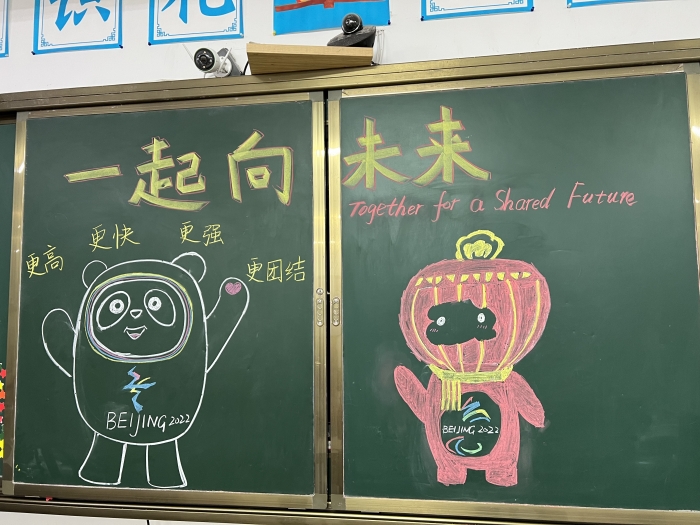 一起向未来
Together for a Shared Future
更高 更快 更强 更团结
BEIJING 2022
BEIJING 2022